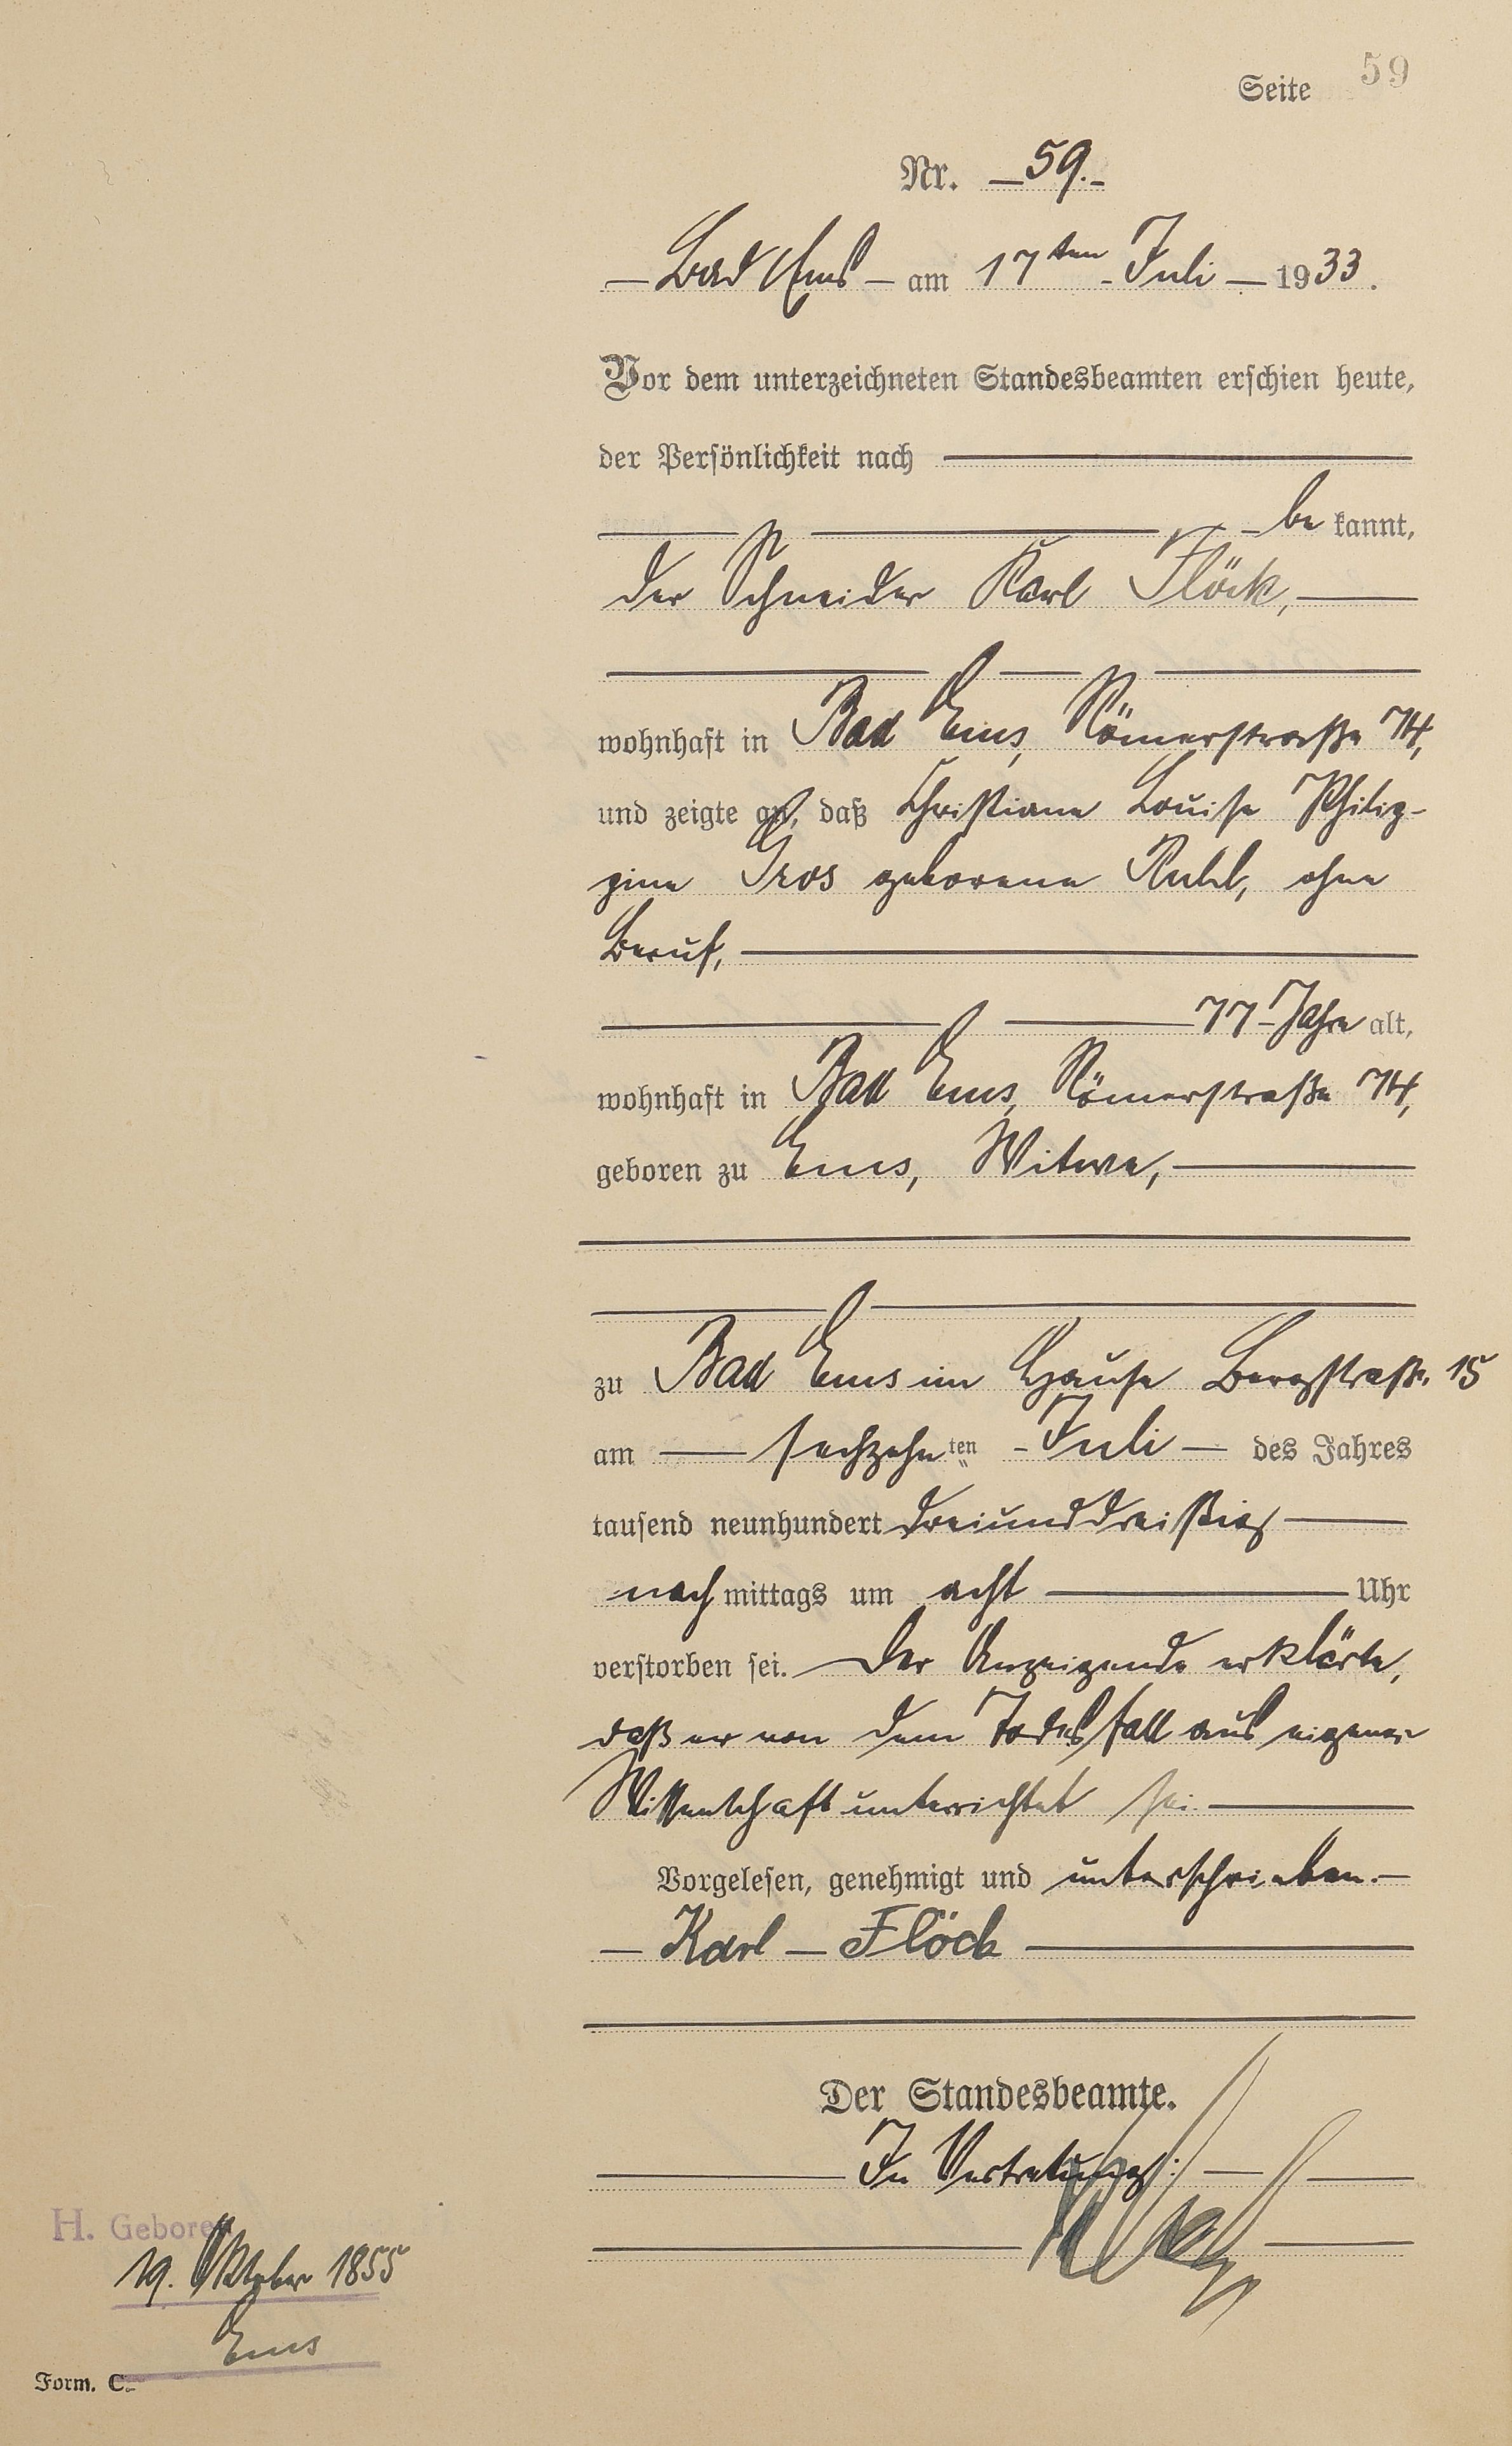 Seite 59
Nr. 59.
Bad Ems am 17ten Juli 1933.
Vor dem unterzeichneten Standesbeamten erschien heute,
der Persönlichkeit nach
be kannt,
der Schneider Karl Flöck,
wohnhaft in Bad Ems, Römerstrasse 74,
und zeigte an, daß Christiane Louise Philip-
pine Gros geborene Ruhl, ohne
Beruf,
77 Jahre alt,
wohnhaft in Bad Ems, Römerstraße 74,
geboren zu Ems, Witwe,
zu Bad Ems im Hause Bergstraße 15
am sechzehnten Juli des Jahres
tausend neunhundert dreiunddreißig
nachmittags um acht Uhr
verstorben sei. Der Anzeigende erklärte,
daß er von dem Todesfall aus eigener
Wissenschaft unterrichtet sei.
Vorgelesen, genehmigt und unterschrieben.
Karl Flöck
Der Standesbeamte.
In Vertretung:
H. Geboren
19. Oktober 1855
Ems
Form. C.